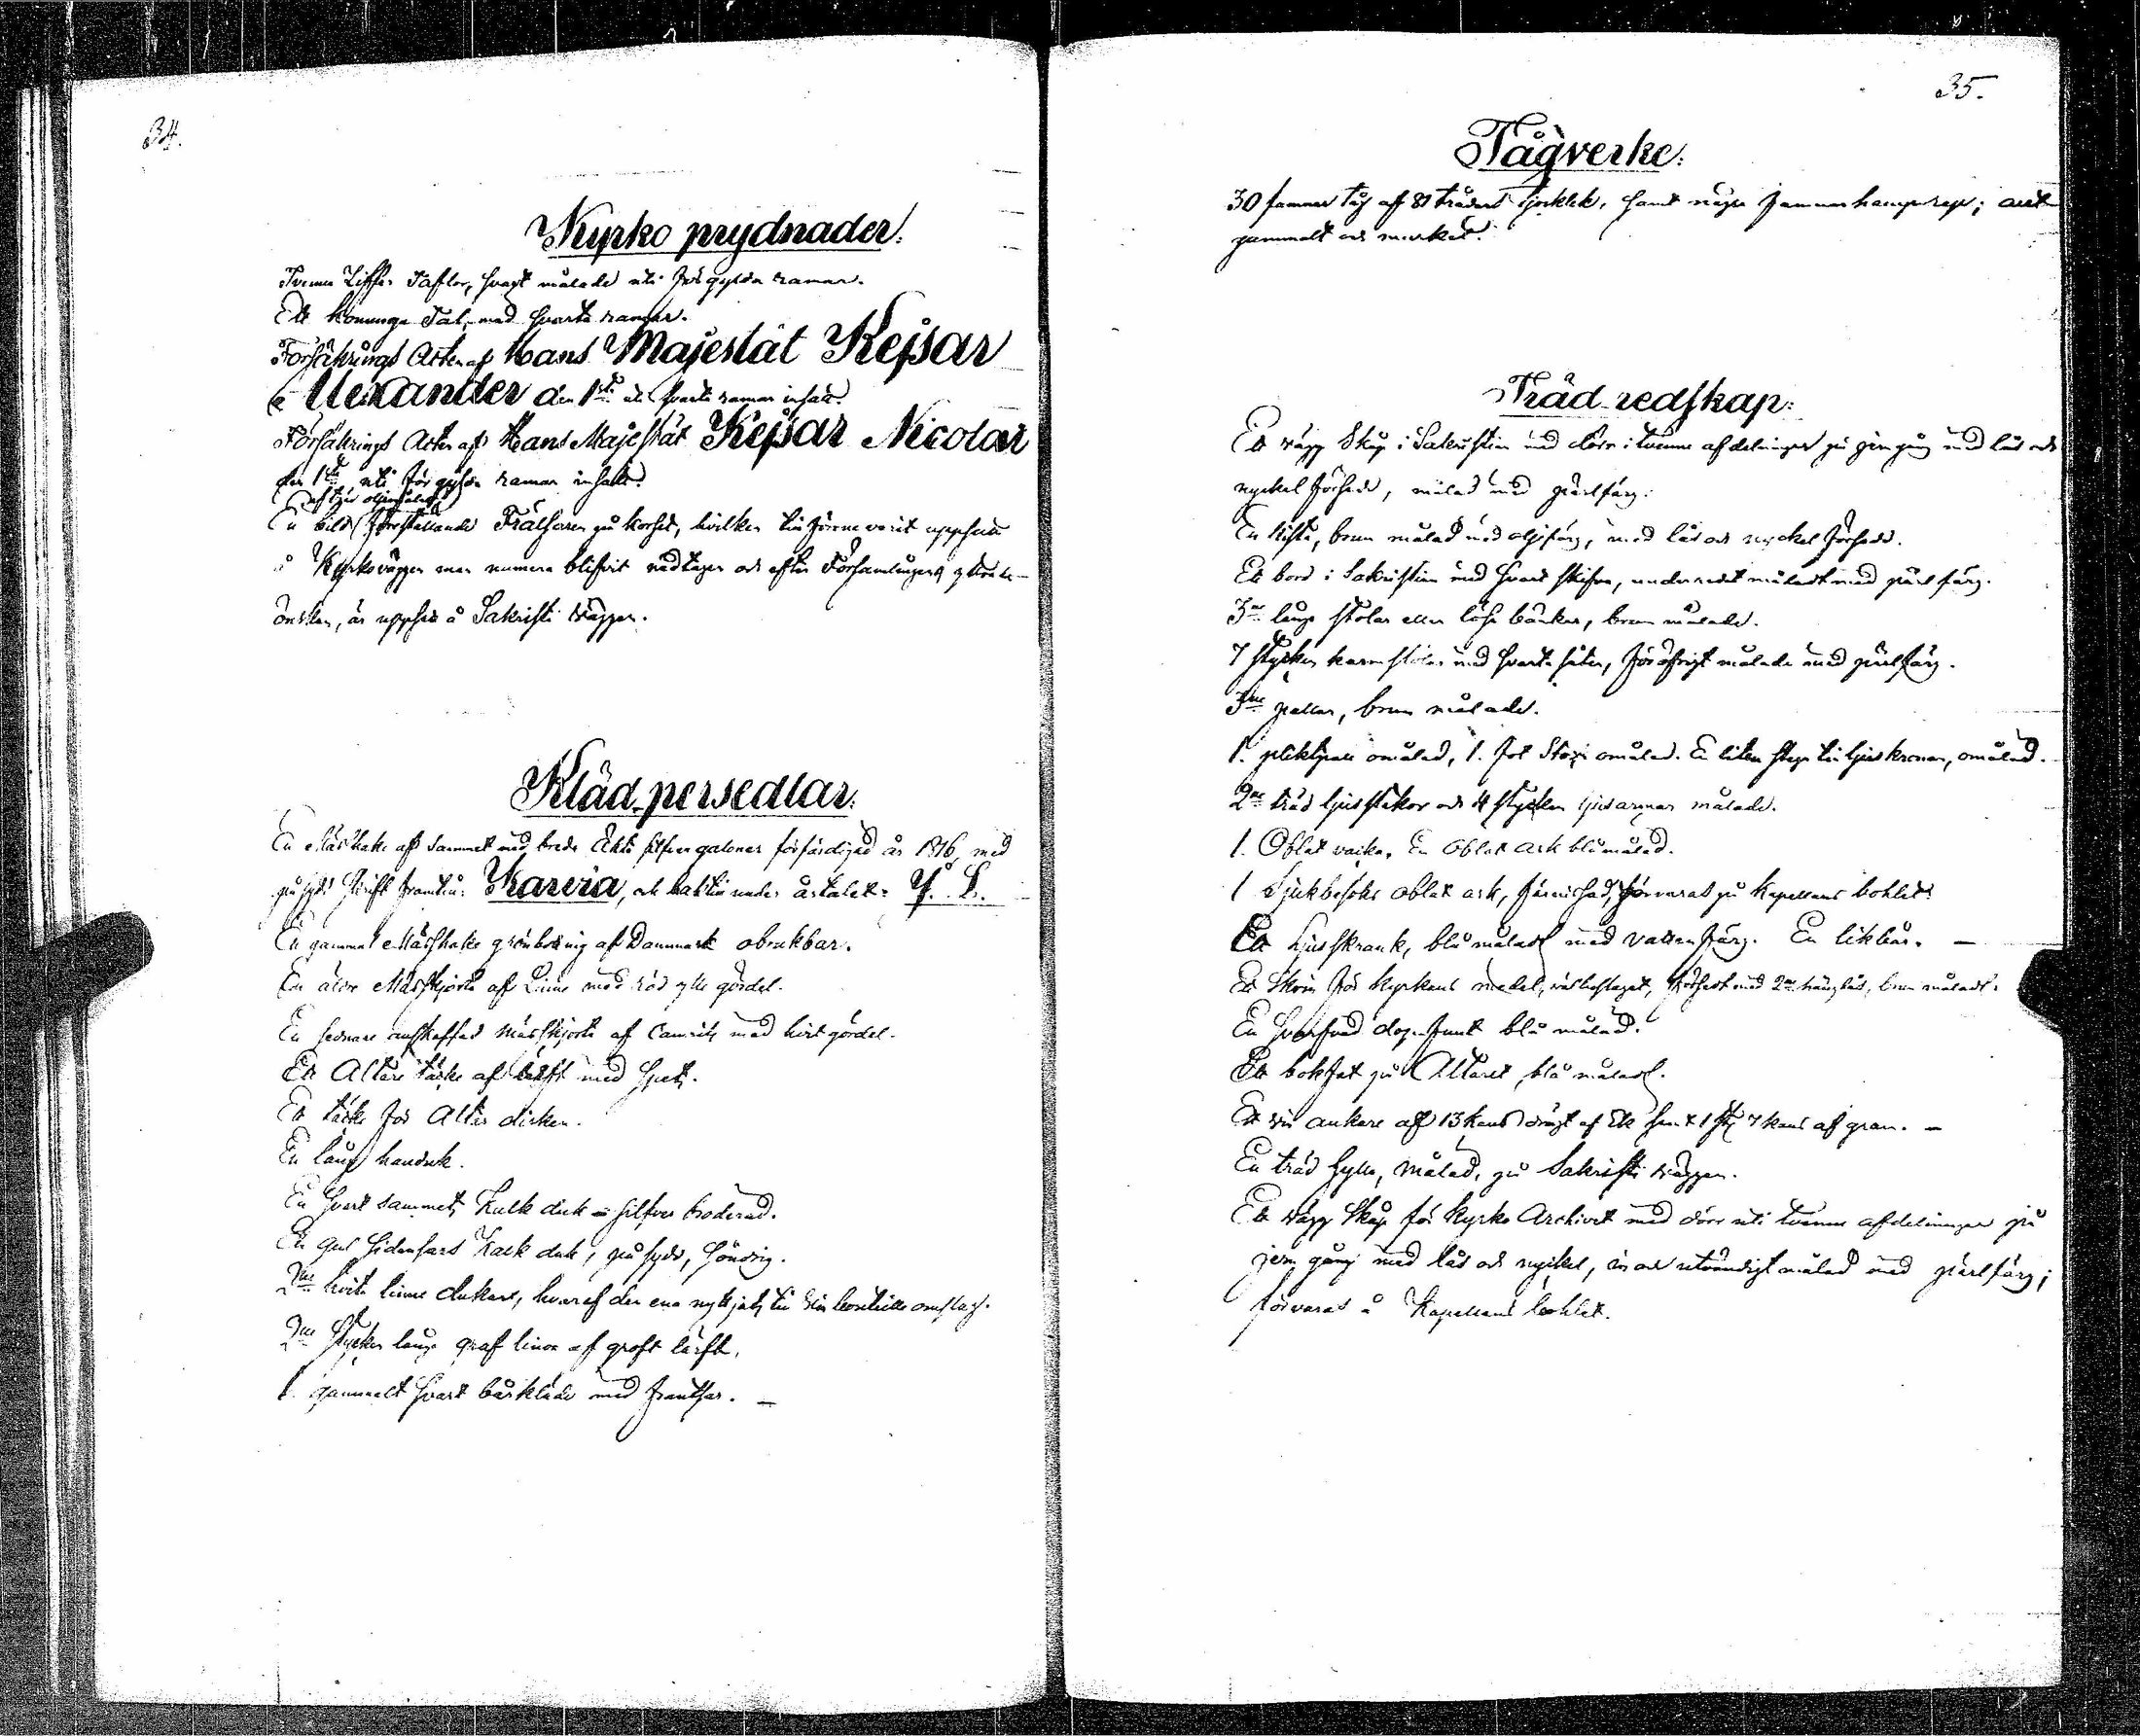 34.
Kyrko prydnader.
Tvenne Ziffer Taflor, svart målade uti förgyllda ramar.
Ett Konunga Tal, med svarta ramar.
Försäkrings Acten af Hans Majestät Kejsar
Alexander den 1sta uti svarta ramar insatt.
Försäkrings Acten af Hans Majestät Kejsar Nicolai
den 1sta, uti förgyllda ramar insatt.
En bild föreställande Frälsaren på korset, hvilken tillförene varit upphängd
å Kyrkoväggen men numera blifvit nedtagen och efter Församlingens yttrade
önskan, är upphängd å Sakristi väggen.
Kläd-persedlar.
En Mässhake af sammet med breda äkta silfver galoner förfärdigad år 1816, med
påsydd skrift framtill: Karvia, och baktill under årtalet: Y. L.
En gammal Mässhake grönbottnig af Dammask obrukbar.
En äldre Mässkjorta af Linne med röd ylle gördel.
En sednare anskaffad Mässkjorta af Camrick med hvit gördel.
Ett Altare täcke af lärft med spets.
Ett täcke för Altar disken.
En lång handuk.
En svart sammets Kalk duk silfver broderad.
En gul sidensars Kalk duk, påsydd, söndrig.
2ne hvita linne dukar, hvaraf den ena nyttjats till Vin bouteille omslag.
2ne stycken långa graf linor af groft lärft.
1. gammalt svart bårkläde med frantsar. —
35.
Tågverke:
30 famnar tåg af 81 trådars tjocklek, samt några famnar hamprep; allt
gammalt och murket.
Träd-redskap:
Ett vägg Skåp i Sakristian med dörr i tvenne afdelningar på gångjern med lås och
nyckel försedt, målad med perlfärg.
En kista, brun målad med oljefärg, med lås och nyckel försedd.
Ett bord i Sakristian med svart skifva, underredet måladt med perlfärg.
3ne långa stolar eller lösa bänkar, brun målade.
7 stycken karmstolar med svarta säten, föröfrigt målade med perlfärg.
3ne pallar, brun målade.
1. pliktpall omålad, 1. fot Stock omålad. En liten stege till ljuskronan, omålad.
2ne träd ljusstakar och 4 stycken ljusarmar målade.
1. Oblat ask. En Oblat ask blåmålad.
1 Sjukbesöks oblat ask, förvaras på Kapellans bohlet.
Ett Ljusskrank, blå måladt med vattenfärg. En likbår. —
Ett Skrin för Kyrkans medel, väl beslaget, försedt med 2ne hänglås, brun måladt.
En svarfvad dop-funt blå målad.
Ett bokfat på Altaret, blå måladt.
Ett vin ankare af 13 kannors drägt af Ek samt 1 st 7 kans af gran. —
En träd hylla, målad, på Sakristi väggen.
Ett vägg Skåp för Kyrko Archivet med dörr uti tvenne afdelningar på
jern gång med lås och nyckel, in och utvändigt målad med perlfärg;
förvaras å Kapellans bohlet.